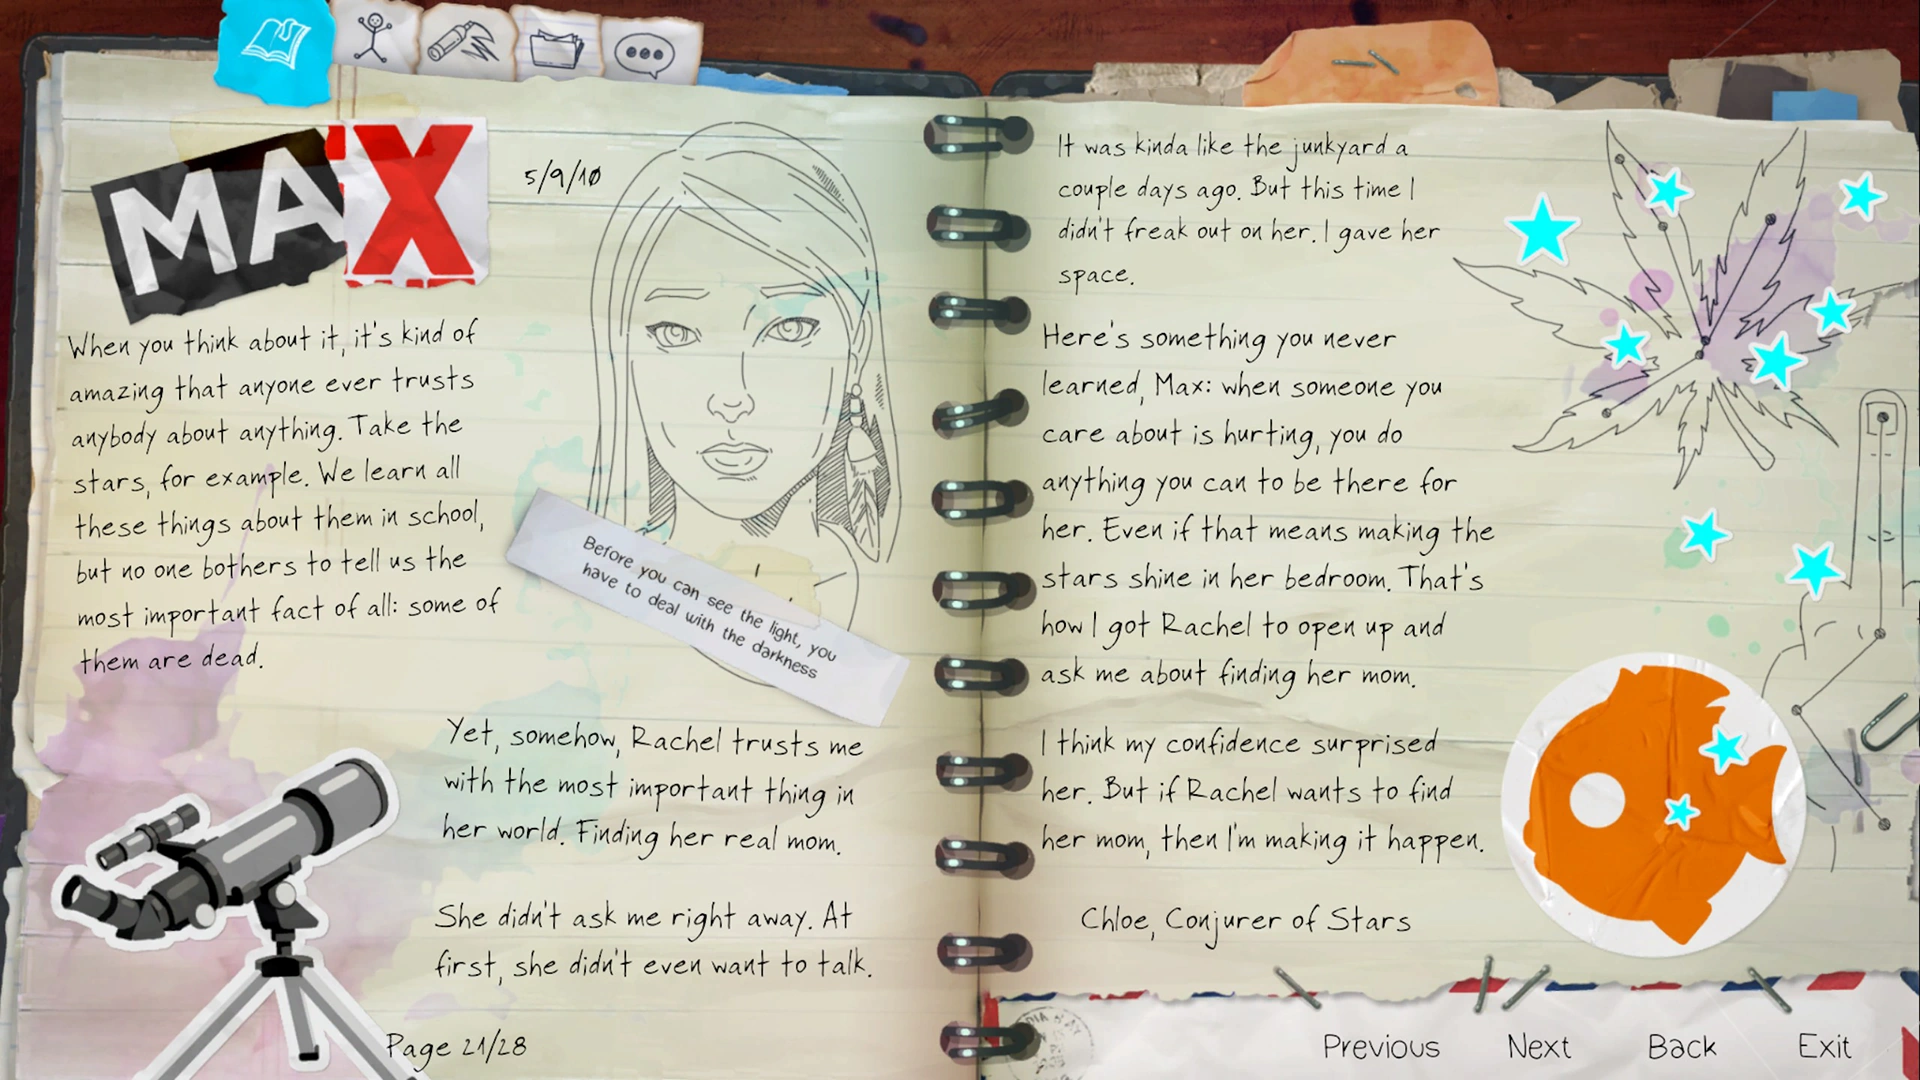 MAX
5/9/10
When you think about it, it's kind of
amazing that anyone ever trusts
anybody about anything. Take the
stars, for example. We learn all
these things about them in school,
but no one bothers to tell us the
most important fact of all: some of
them are dead.
Before you can see the light, you
have to deal with the darkness
Yet, somehow, Rachel trusts me
with the most important thing in
her world. Finding her real mom.
She didn't ask me right away. At
first, she didn't even want to talk.
Page 21/28
It was kinda like the junkyard a
couple days ago. But this time I
didn't freak out on her. I gave her
space.
Here's something you never
learned, Max: when someone you
care about is hurting, you do
anything you can to be there for
her. Even if that means making the
stars shine in her bedroom. That's
how I got Rachel to open up and
ask me about finding her mom.
I think my confidence surprised
her. But if Rachel wants to find
her mom, then I'm making it happen.
Chloe, Conjurer of Stars
Previous Next Back Exit